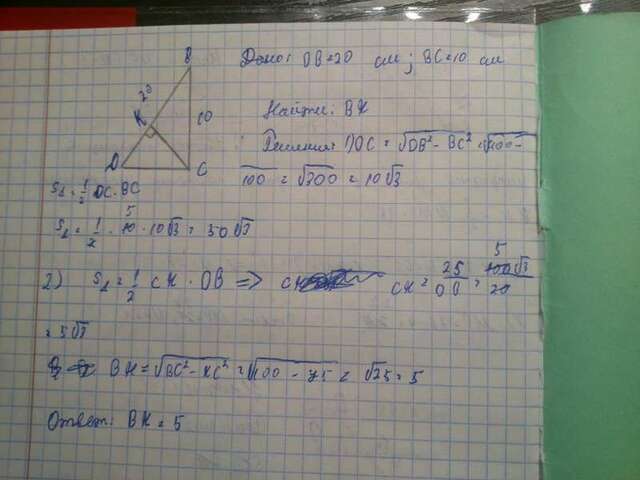 B
20
K
10
D
C
Дано: DB=20 см; BC=10 см
Найти: BK
Решение: 1) DC = √DB² - BC² = √400 -
100 = √300 = 10√3
S△ = 1/2 DC · BC
S△ = 1/2 · 10 · 10√3 = 50√3
5
2) S△ = 1/2 CK · DB => CK = 2S/DB = 100√3/20
5
= 5√3
BK = √BC² - KC² = √100 - 75 = √25 = 5
Ответ: BK = 5